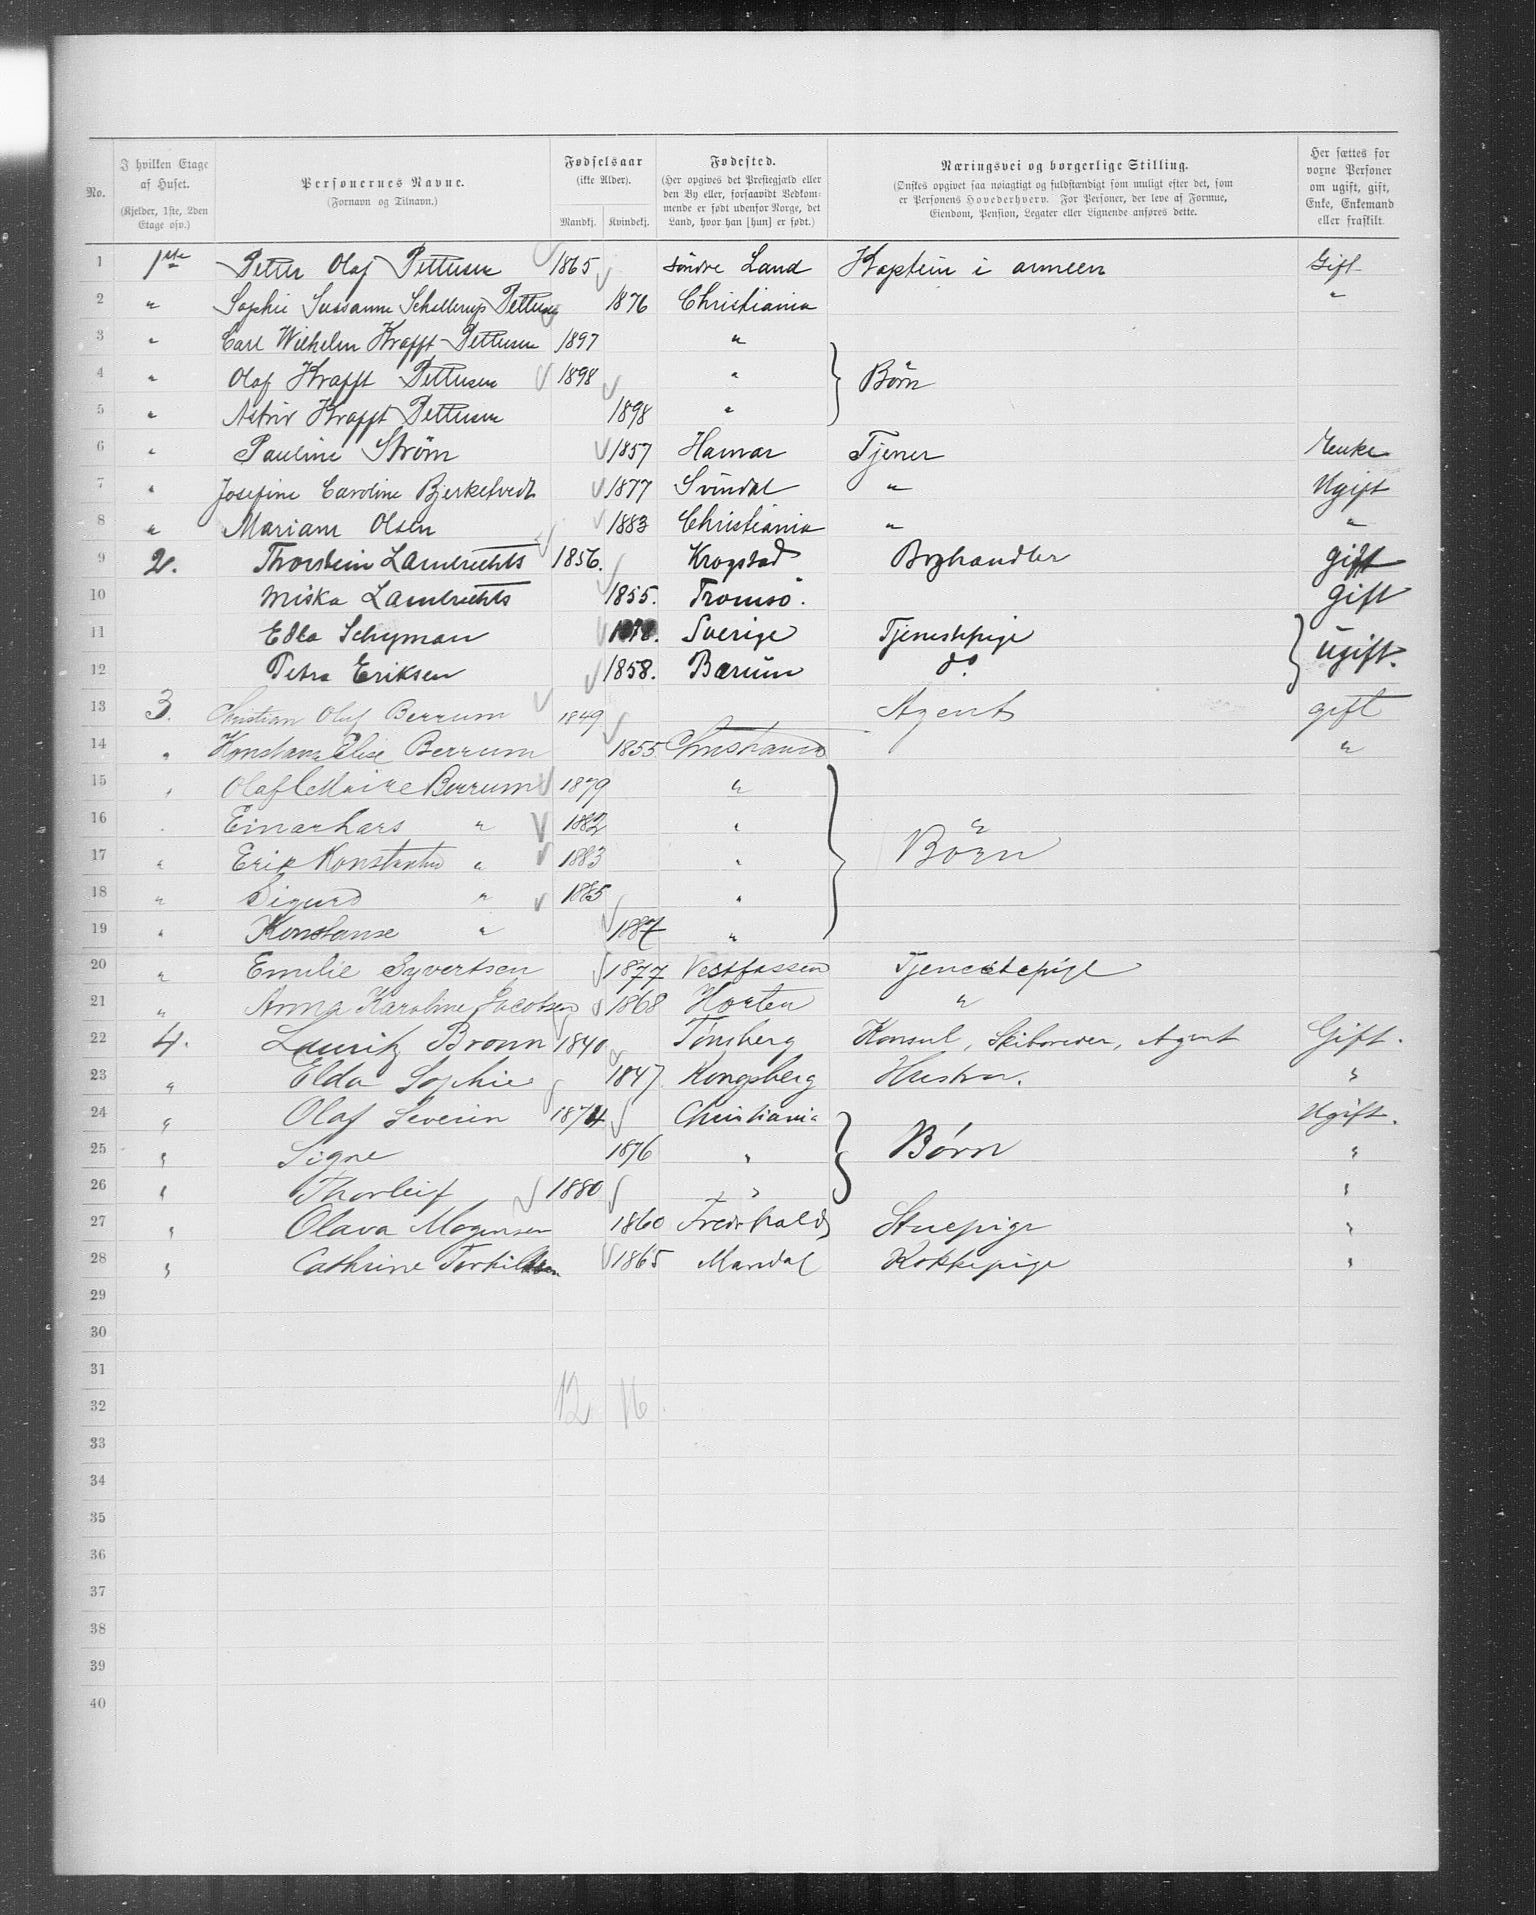 No.
I hvilken Etage af Huset. (Kjelder, 1ste, 2den Etage osv.)
Personernes Navne. (Fornavn og Tilnavn.)
Fødselsaar (ikke Alder). Mandkj. Kvindekj.
Fødested. (Her opgives det Prestegjæld eller den By eller, forsaavidt Vedkommende er født udenfor Norge, det Land, hvor han [hun] er født.)
Næringsvei og borgerlige Stilling. (Ønskes opgivet saa nøiagtigt og fuldstændigt som muligt efter det, som er Personens Hovederhverv. For Personer, der leve af Formue, Eiendom, Pension, Legater eller Lignende anføres dette.)
Her sættes for vorne Personer om ugift, gift, Enke, Enkemand eller fraskilt.
1 1ste Petter Olaf Pettersen 1865 Søndre Land Kaptein i armeen Gift
2 " Sophie Sussanne Schellerup Pettersen 1876 Christiania "
3 " Carl Wilhelm Krafft Pettersen 1897 "
4 " Olaf Krafft Pettersen 1898 " Børn
5 " Astrid Krafft Pettersen 1898 "
6 " Pauline Strøm 1857 Hamar Tjener Enke
7 " Josefine Caroline Bjerketvedt 1877 Svindal " Ugift
8 " Mariam Olsen 1883 Christiania " "
9 2. Thorstein Lambrechts 1856. Krogstad Boghandler gift
10 Miska Lambrechts 1855. Tromsø. gift
11 Edla Schyman Sverige Tjenestepige ugift.
12 Petra Eriksen 1858. Bærum do.
13 3. Christian Oluf Berrum 1849 Agent gift
14 " Konstanse Elise Berrum 1855 Christiania "
15 " Olaf leMaire Berrum 1879 "
16 Einar Lars " 1882 " "
17 " Erik Konstantin " 1883 " Børn
18 " Sigurd " 1885 "
19 " Konstanse " 1887 "
20 " Emilie Syvertsen 1877 Vestfossen Tjenestepige
21 " Anna Karoline Jacobsen 1868 Horten "
22 4. Lauritz Bronn 1840. Tønsberg Konsul, Skibsreder, Agent Gift.
23 " Elda Sophie 1847 Kongsberg Hustru. "
24 " Olaf Severin 1874 Christiania Ugift.
25 " Signe 1876 " Børn "
26 " Thorleif 1880 " "
27 " Olava Mogensen 1860 Fredrhald Stuepige "
28 " Cathrine Torkildsen 1865 Mandal Kokkepige "
29
30
31
32 12 16
33
34
35
36
37
38
39
40